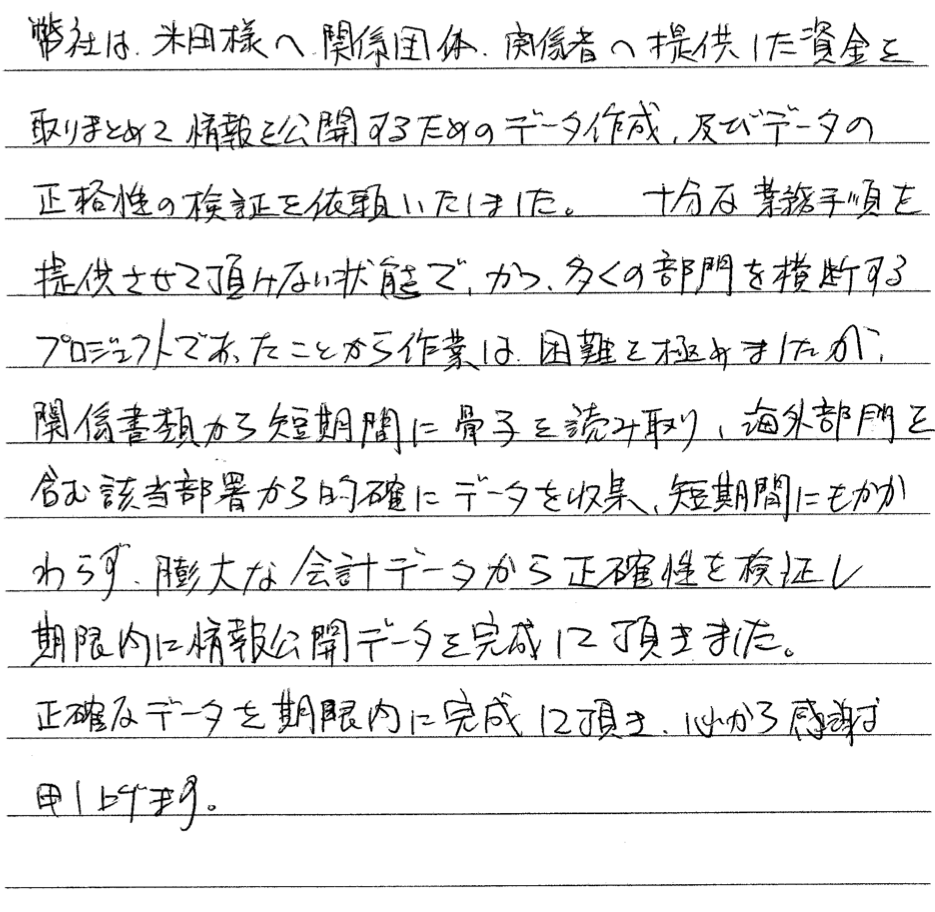 弊社は、米田様へ、関係団体、関係者へ提供した資金を
取りまとめて情報を公開するためのデータ作成、及びデータの
正格性の検証を依頼いたしました。 十分な業務手順を
提供させて頂けない状態で、かつ、多くの部門を横断する
プロジェクトであったことから作業は、困難を極めましたが、
関係書類から短期間に骨子を読み取り、海外部門を
含む該当部署から的確にデータを収集、短期間にもかか
わらず、膨大な会計データから正確性を検証し
期限内に情報公開データを完成して頂きました。
正確なデータを期限内に完成して頂き、心から感謝
申し上げます。